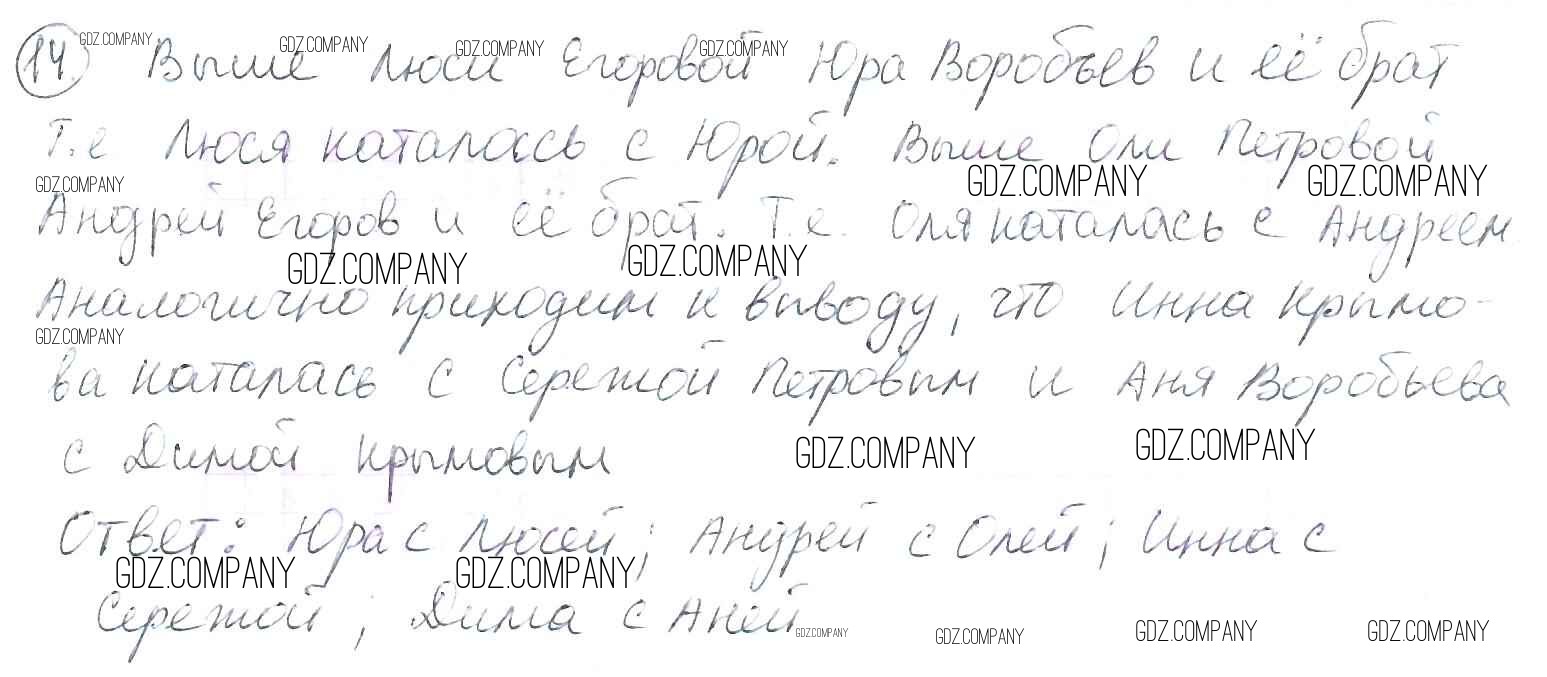 14. Выше Люси Егоровой Юра Воробьев и её брат
GDZ.COMPANY GDZ.COMPANY GDZ.COMPANY GDZ.COMPANY
т.е Люся каталась с Юрой. Выше Оли Петровой
GDZ.COMPANY GDZ.COMPANY GDZ.COMPANY
Андрей Егоров и её брат. Т.е. Оля каталась с Андреем
GDZ.COMPANY GDZ.COMPANY
Аналогично приходим к выводу, что Инна Крымо-
GDZ.COMPANY
ва каталась с Сережой Петровым и Аня Воробьева
с Димой Крымовым
GDZ.COMPANY GDZ.COMPANY
Ответ: Юра с Люсей; Андрей с Олей; Инна с
GDZ.COMPANY GDZ.COMPANY
Сережой; Дима с Аней
GDZ.COMPANY GDZ.COMPANY GDZ.COMPANY GDZ.COMPANY